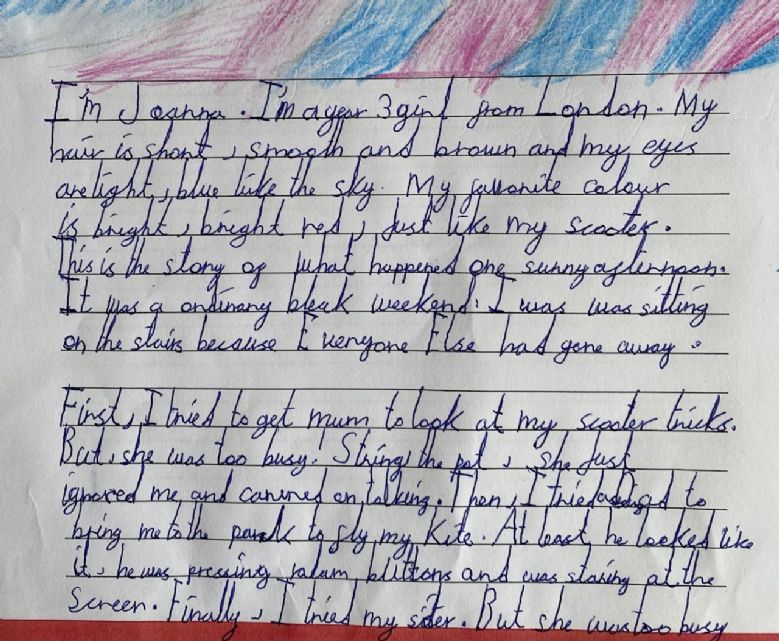 I'm Joanna. I'm a year 3 girl from London. My
hair is short, smooth and brown and my eyes
are light, blue like the sky. My favorite colour
is bright, bright red, just like my scooter.
This is the story of what happened one sunny afternoon.
It was a ordinary bleak weekend. I was was sitting
on the stairs because Everyone Else had gone away.
First, I tried to get mum to look at my scooter tricks.
But, she was too busy. String the pot, she just
ignored me and carried on talking. Then, I tried to
bring me to the park to fly my kite. At least he looked like
it, he was pressing buttons and was staring at the
screen. Finally, I tried my sister. But she was too busy